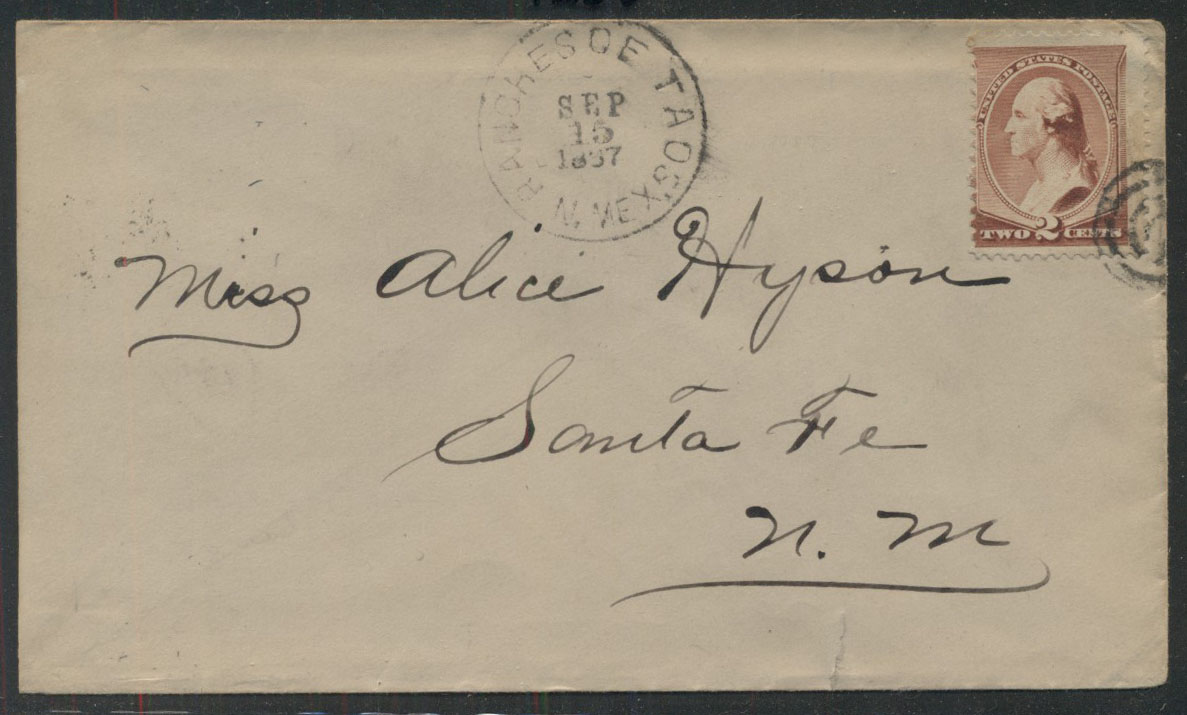 RANCHES DE TAOS
N. MEX.
SEP
15
1887
UNITED STATES POSTAGE
TWO 2 CENTS
Miss Alice Hyson
Santa Fe
N. M